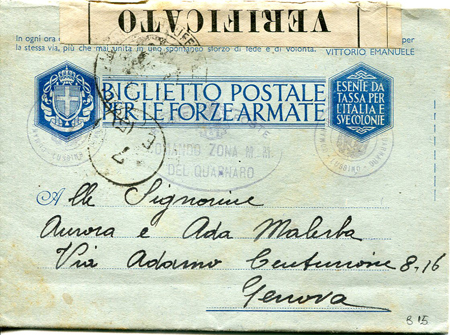 VERIFICATO
In ogni ora
per
la stessa via, più che mai unita in uno spontaneo sforzo di fede e di volontà. VITTORIO EMANUELE
BIGLIETTO POSTALE
PER LE FORZE ARMATE
ESENTE DA
TASSA PER
L'ITALIA E
SVE COLONIE
COMANDO ZONA M.M.
DEL QUARNARO
Alle Signorine
Aurora e Ada Malerba
Via Adamo Centurione 8-16
Genova
B 15